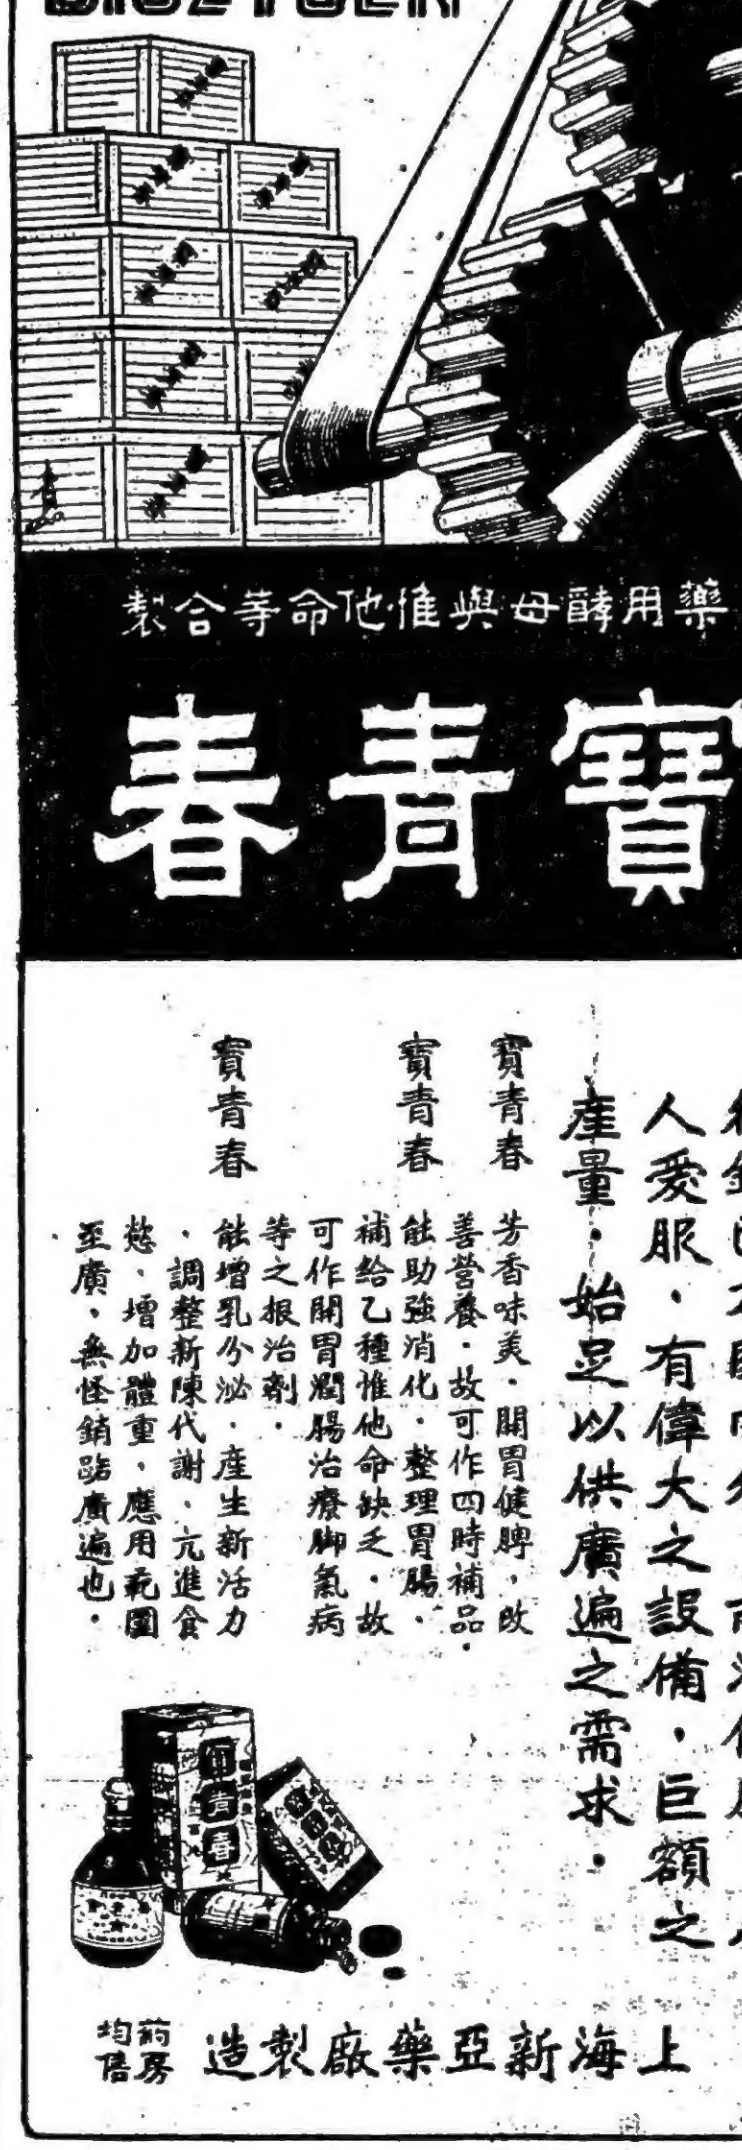 藥用酵母與惟他命等合製
寶青春
人愛服・有偉大之設備・巨額之
產量・始足以供廣遍之需求・
寶青春 芳香味美・開胃健脾・改
善營養・故可作四時補品・
寶青春 能助強消化・整理胃腸・
補給乙種惟他命缺乏・故
可作開胃潤腸治療脚氣病
等之根治劑・
寶青春 能增乳分泌・產生新活力
・調整新陳代謝・亢進食
慾・增加體重・應用範圍
至廣・無怪銷路廣遍也・
寶青春
上海新亞藥廠製造
葯房
均售